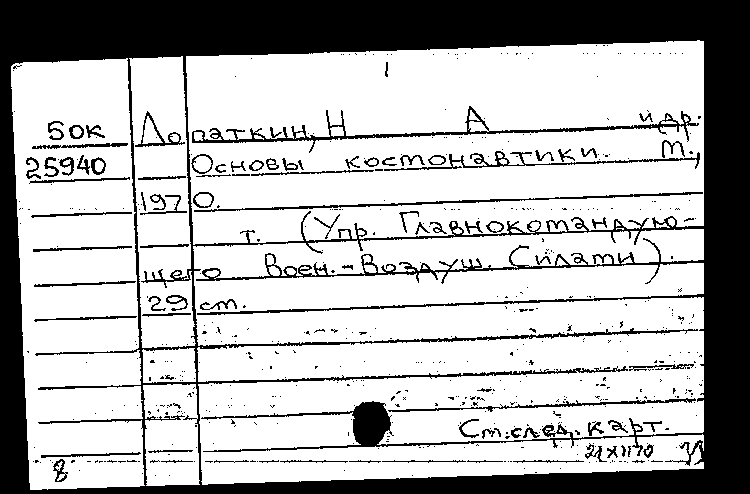 1
50к Лопаткин, Н А и др.
25940 Основы космонавтики. М.,
1970.
т. (Упр. Главнокомандую-
щего Воен.-Воздуш. Силами).
29 см.
См. след. карт.
8